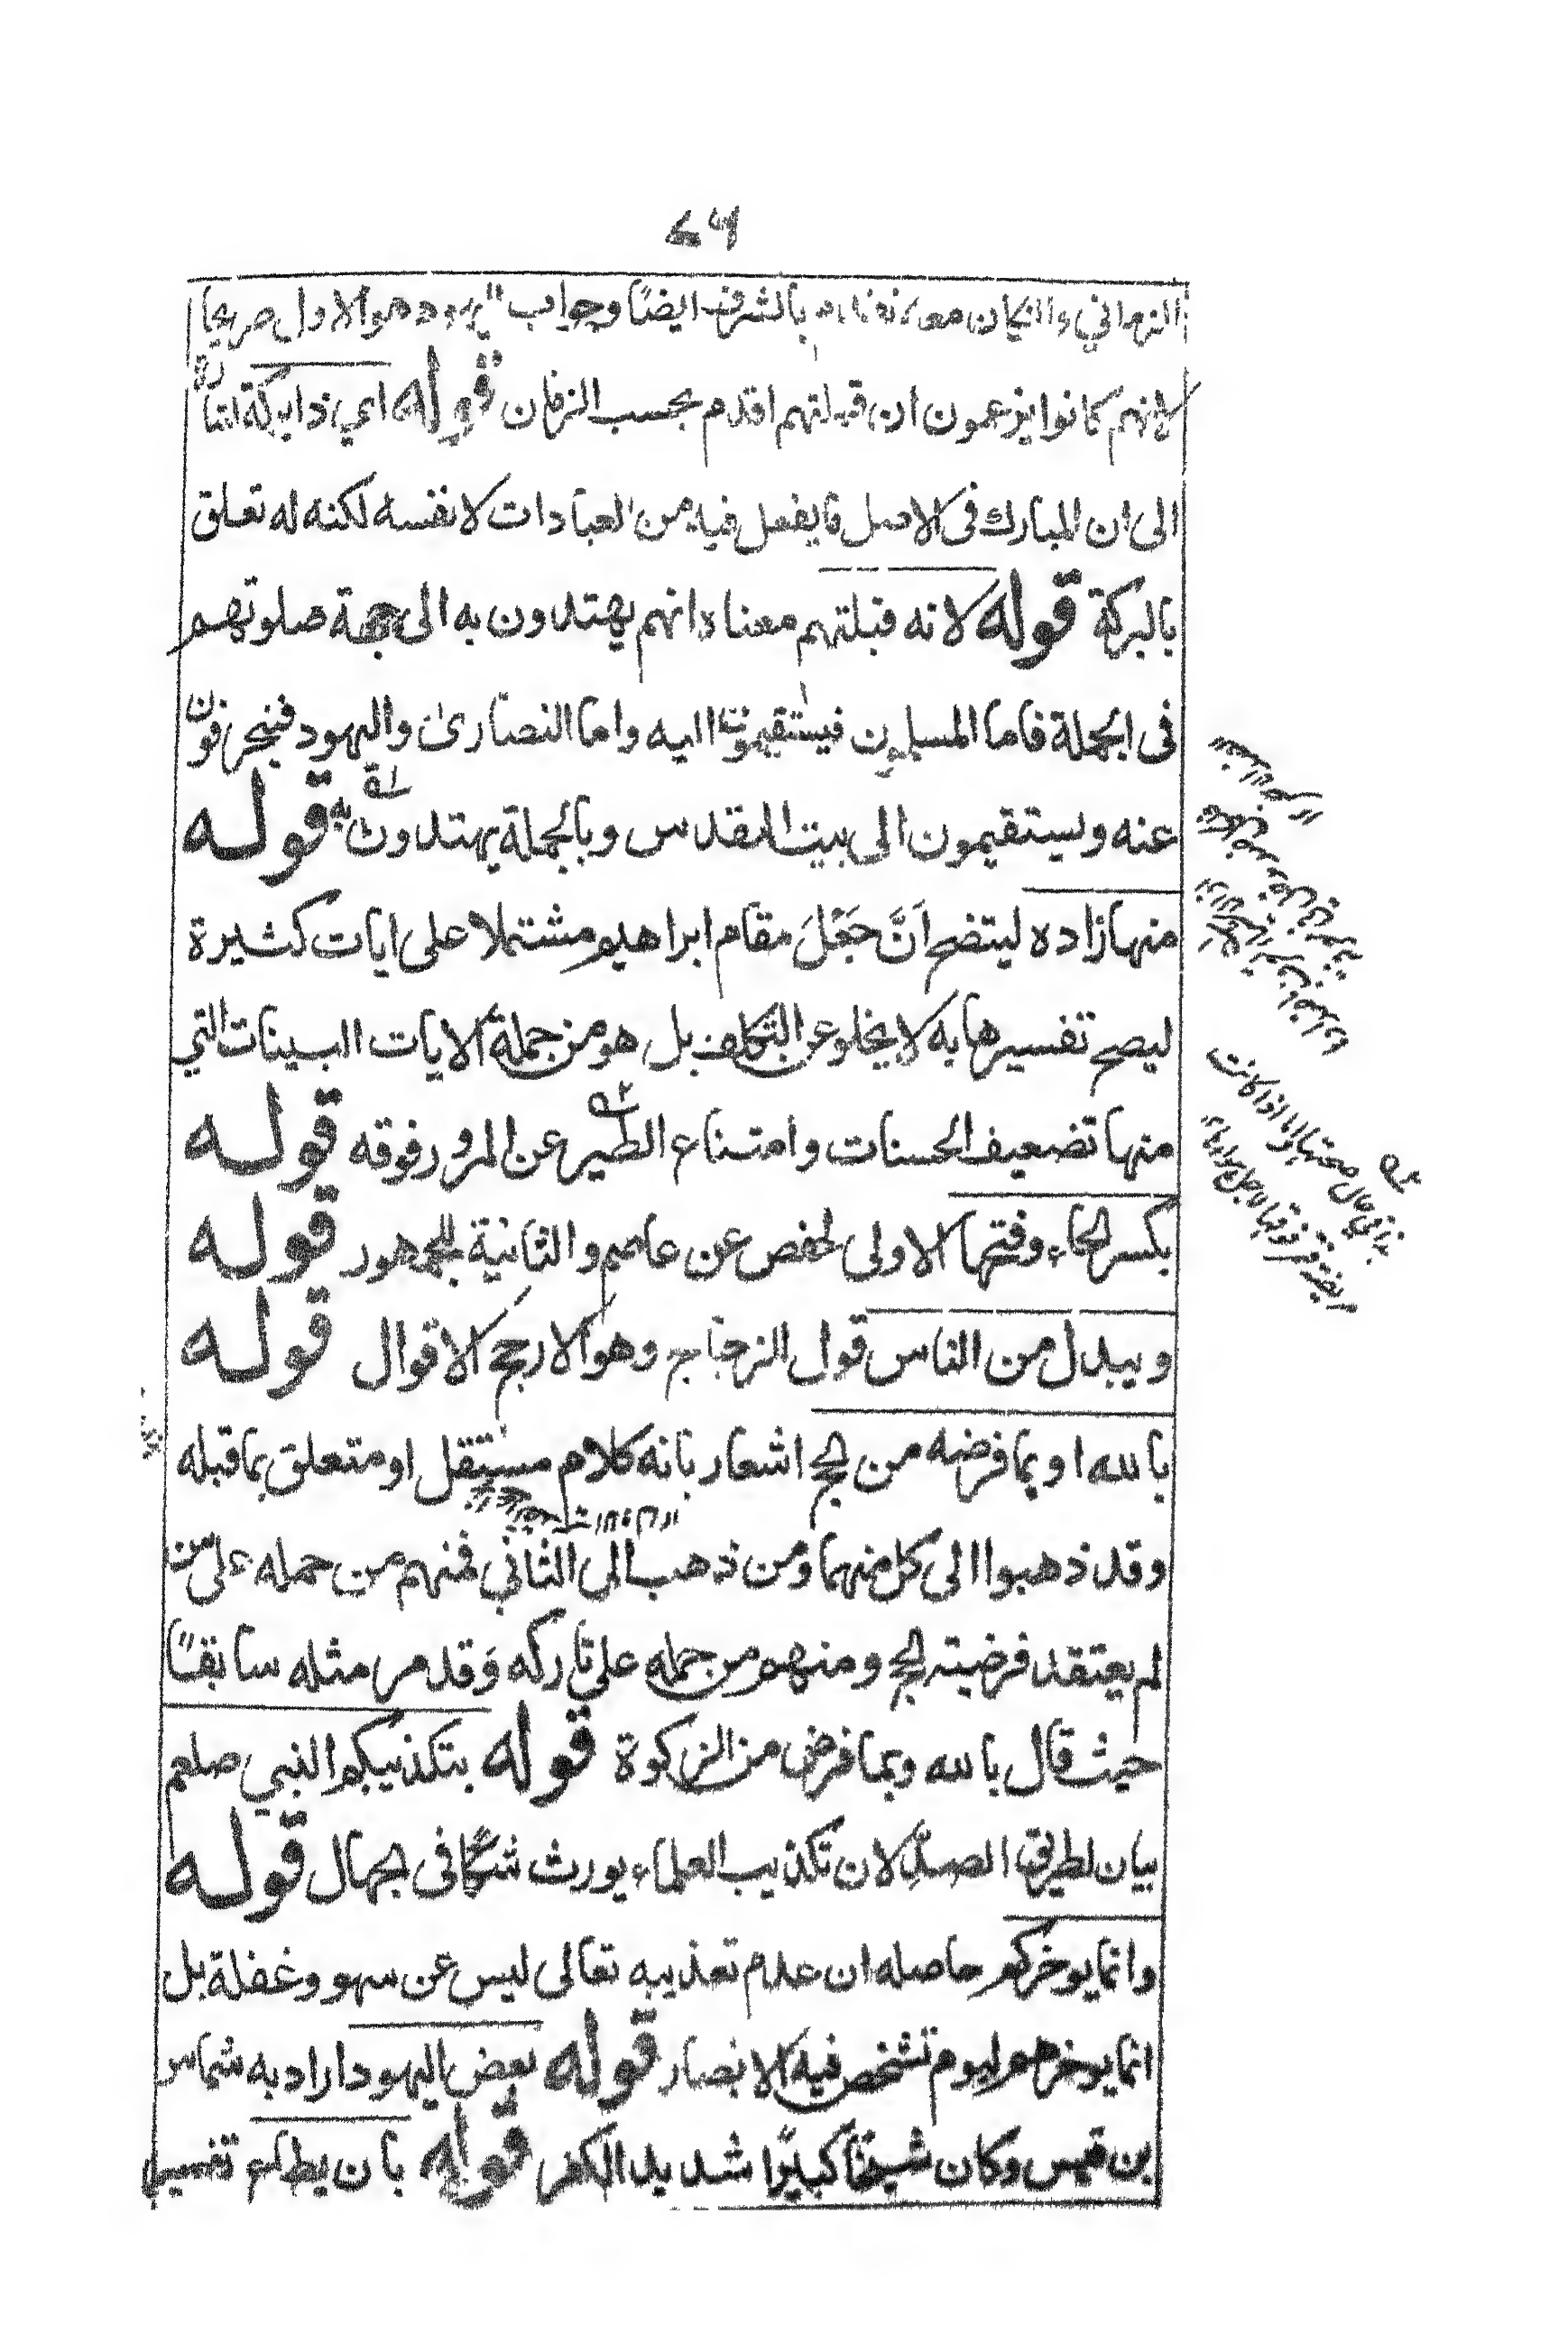 الزماني والمكان بالشرف ايضًا وجواب اليهود هو الاول صريحا
لانهم كانوا يزعمون ان قبلتهم اقدم بحسب الزمان قوله اي ذا بركة اشارة
الى ان المبارك فى الاصل ما يفعل فيه من العبادات لا نفسه لكنه له تعلق
بالبركة قوله لانه قبلتهم معناه انهم يهتدون به الى جهة صلوتهم
فى الجملة فاما المسلمون فيستقيمون اليه واما النصارى واليهود فينحرفون
عنه ويستقيمون الى بيت المقدس وبالجملة يهتدون به قوله
منها زاده ليتضح اَنَّ جَعْلَ مقام ابراهيم مشتملا على ايات كثيرة
ليصح تفسيرها به لا يخلو عن التكلف بل هو من جملة الايات البينات التي
منها تضعيف الحسنات وامتناع الطير عن المرور فوقه قوله
بكسر الحاء وفتحها الاولى لحفص عن عاصم والثانية للجمهور قوله
ويبدل من الناس قول الزجاج وهو الارجح الاقوال قوله
بالله او بما فرضه من الحج اشعار بانه كلام مستقل او متعلق بما قبله
وقد ذهبوا الى كل منهما ومن ذهب الى الثاني فمنهم من حمله على من
لم يعتقد فرضيته الحج ومنهم من حمله على تاركه وَقد مر مثله سابقًا
حيث قال بالله وبما فرض من الزكوة قوله بتكذيبكم النبي صلعم
بيان لطريق الصدّ لان تكذيب العلماء يورث شكًا فى جهال قوله
وانما يوخركم حاصله ان عدم تعذيبه تعالى ليس عن سهو وغفلة بل
انما يوخرهم ليوم تشخص فيه الابصار قوله بعض اليهود اراد به شماس
بن قيس وكان شيخًا كبيرًا شديد الكفر قوله بان يطاع تفسير